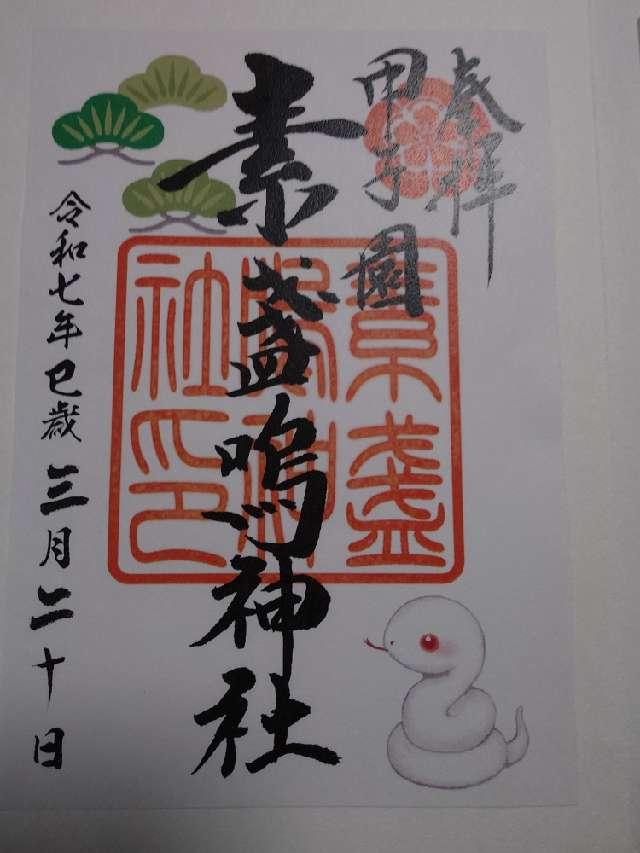 奉拝
甲子園
素盞嗚神社
素盞
嗚神
社印
令和七年巳歳三月二十日